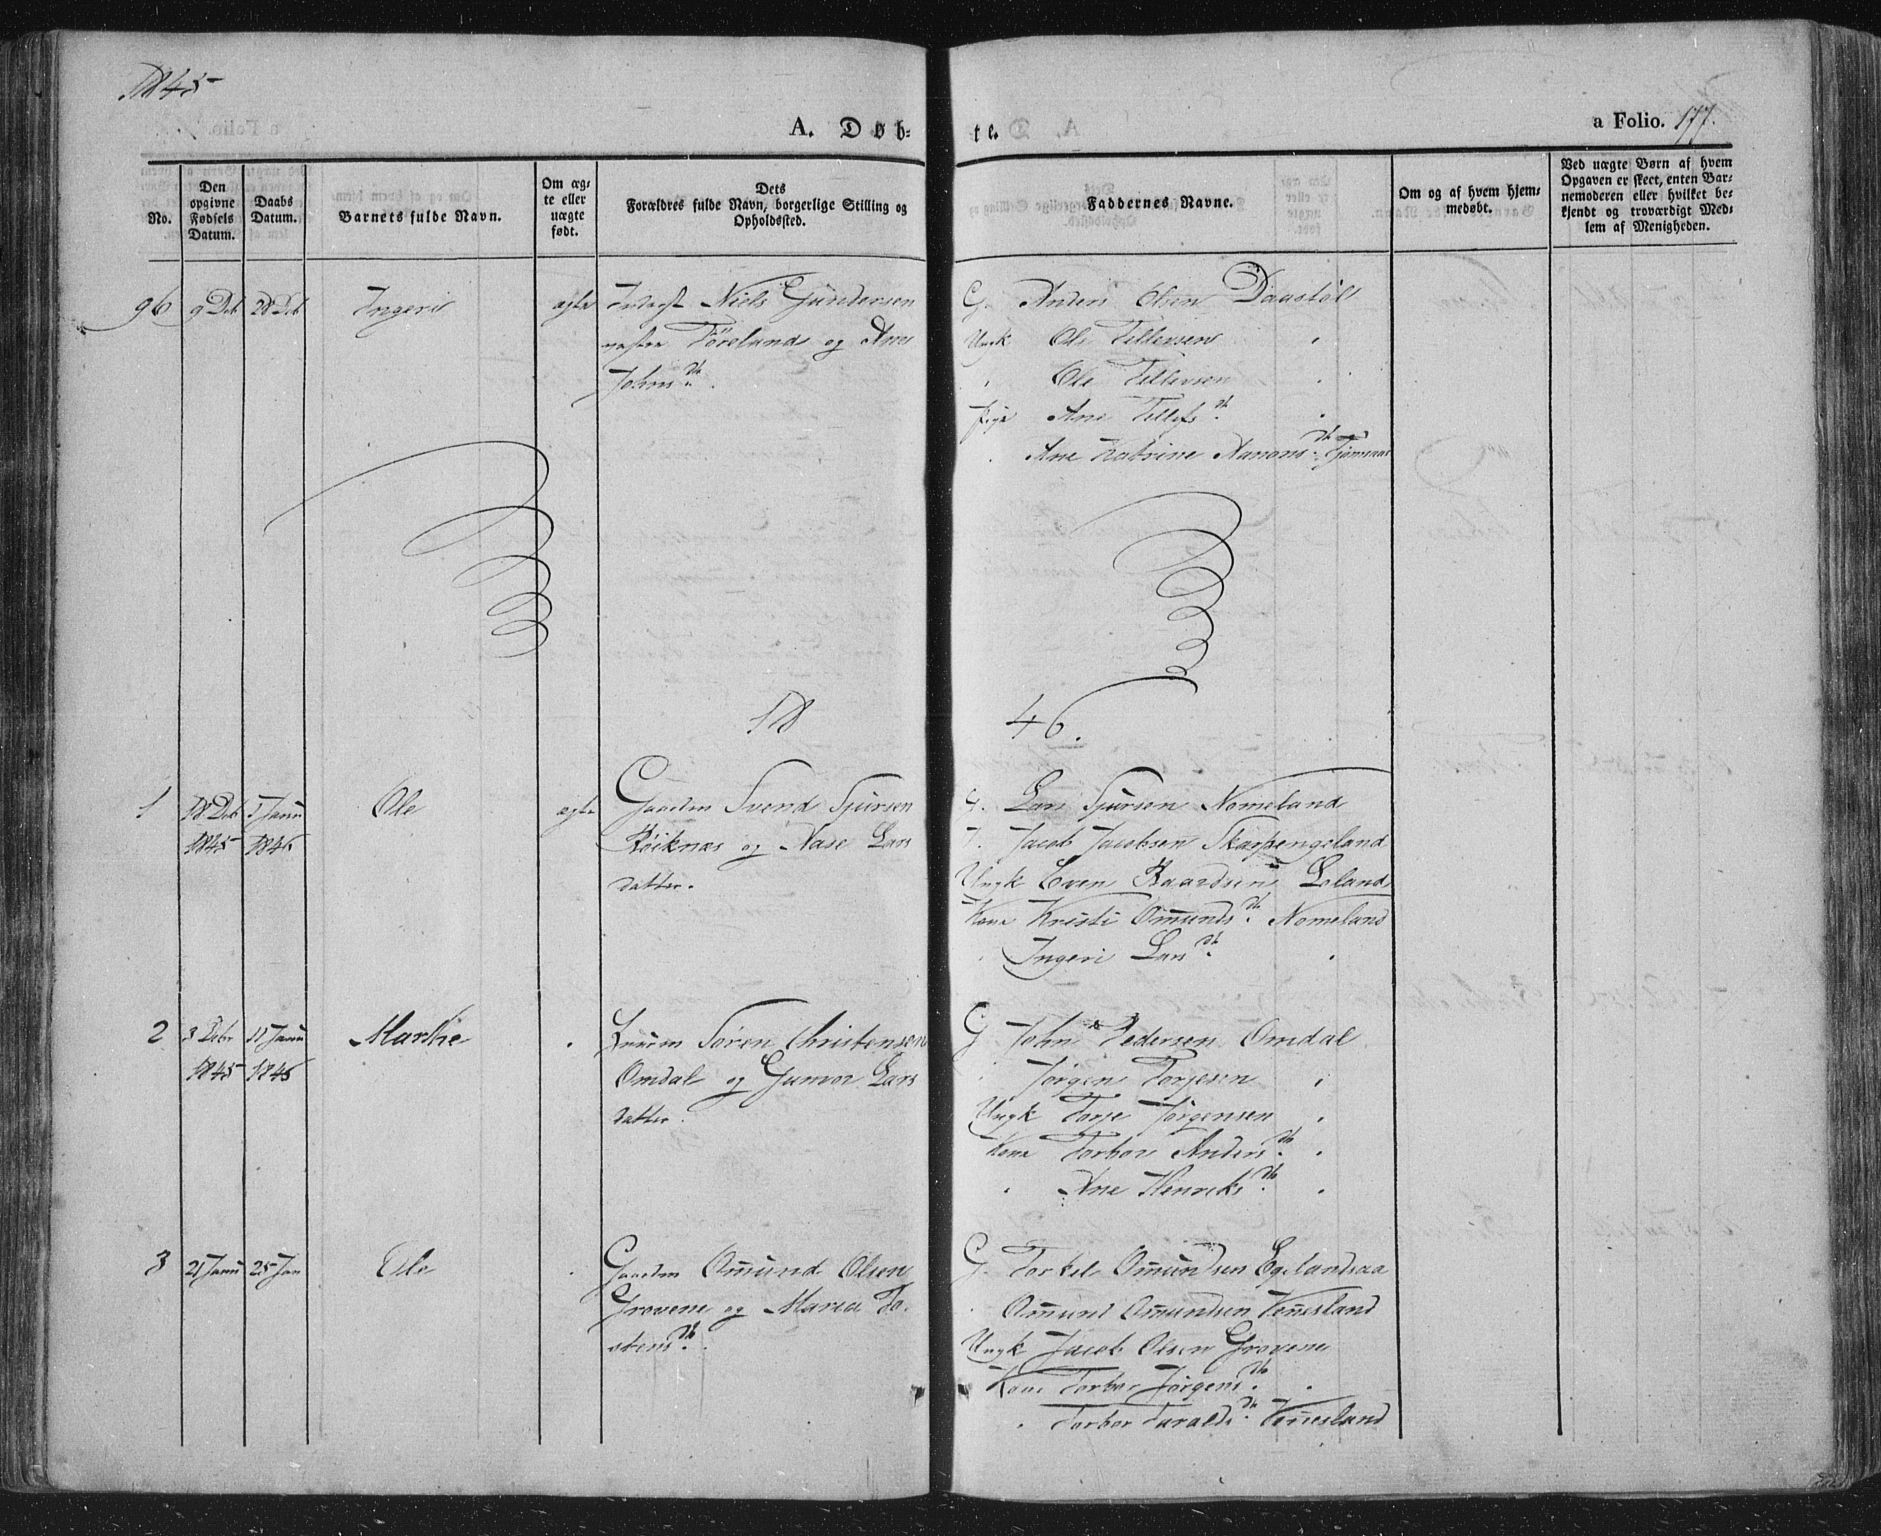 1845
A. Døb=
te.
a Folio. 177.
No.
Den opgivne Fødsels Datum.
Daabs Datum.
Barnets fulde Navn.
Om æg= te eller uægte født.
Dets Forældres fulde Navn, borgerlige Stilling og Opholdssted.
Faddernes Navne.
Om og af hvem hjem= medøbt.
Ved uægte Børn af hvem Opgaven er skeet, enten Bar= nemoderen eller hvilket be= kjendt og troværdigt Med= lem af Menigheden.
96 9 Deb 28 Deb Ingeri ægte Niels Gundersen
Föreland og Ane
Johns dtr.
G. Anders Olsen Daastöl
Ungk Ole Tellevsen "
" Ole Tellevsen "
Pige Ane Tellefs dtr. "
" Ane Katrine Aanons dtr.
18
46.
1 18 Deb 1 Janu Ole ægte Gaardm Svend Sjursen
1845 1846 Röiknæs og Aase Lars
datter.
G. Lars Sjursen Nomeland
J. Jacob Jacobsen Skarpengeland
Ungk Even Baardsen Loland
Kone Kristi Omunds dtr. Nomeland
" Ingeri Lars dtr. "
2 3 Debr 11 Janu Marthe " Sören Christensen
1845 1846 Omdal og Gunvor Lars
datter.
G John Pedersen Omdal
" Jörgen Torjesen "
Ungk Torje Jörgensen "
Kone Torbor Anders dtr. "
" Ane Henriks dtr. "
3 21 Janu 25 Jan Ole " Gaardm Omund Olsen
Grovene og Maria To=
stens dtr.
G. Torkel Omundsen Egelandsaa
" Omund Omundsen Vennesland
Ungk Jacob Olsen Grovene
Kone Torbor Jörgens dtr. "
" Torbor Taralds dtr. Vennesland